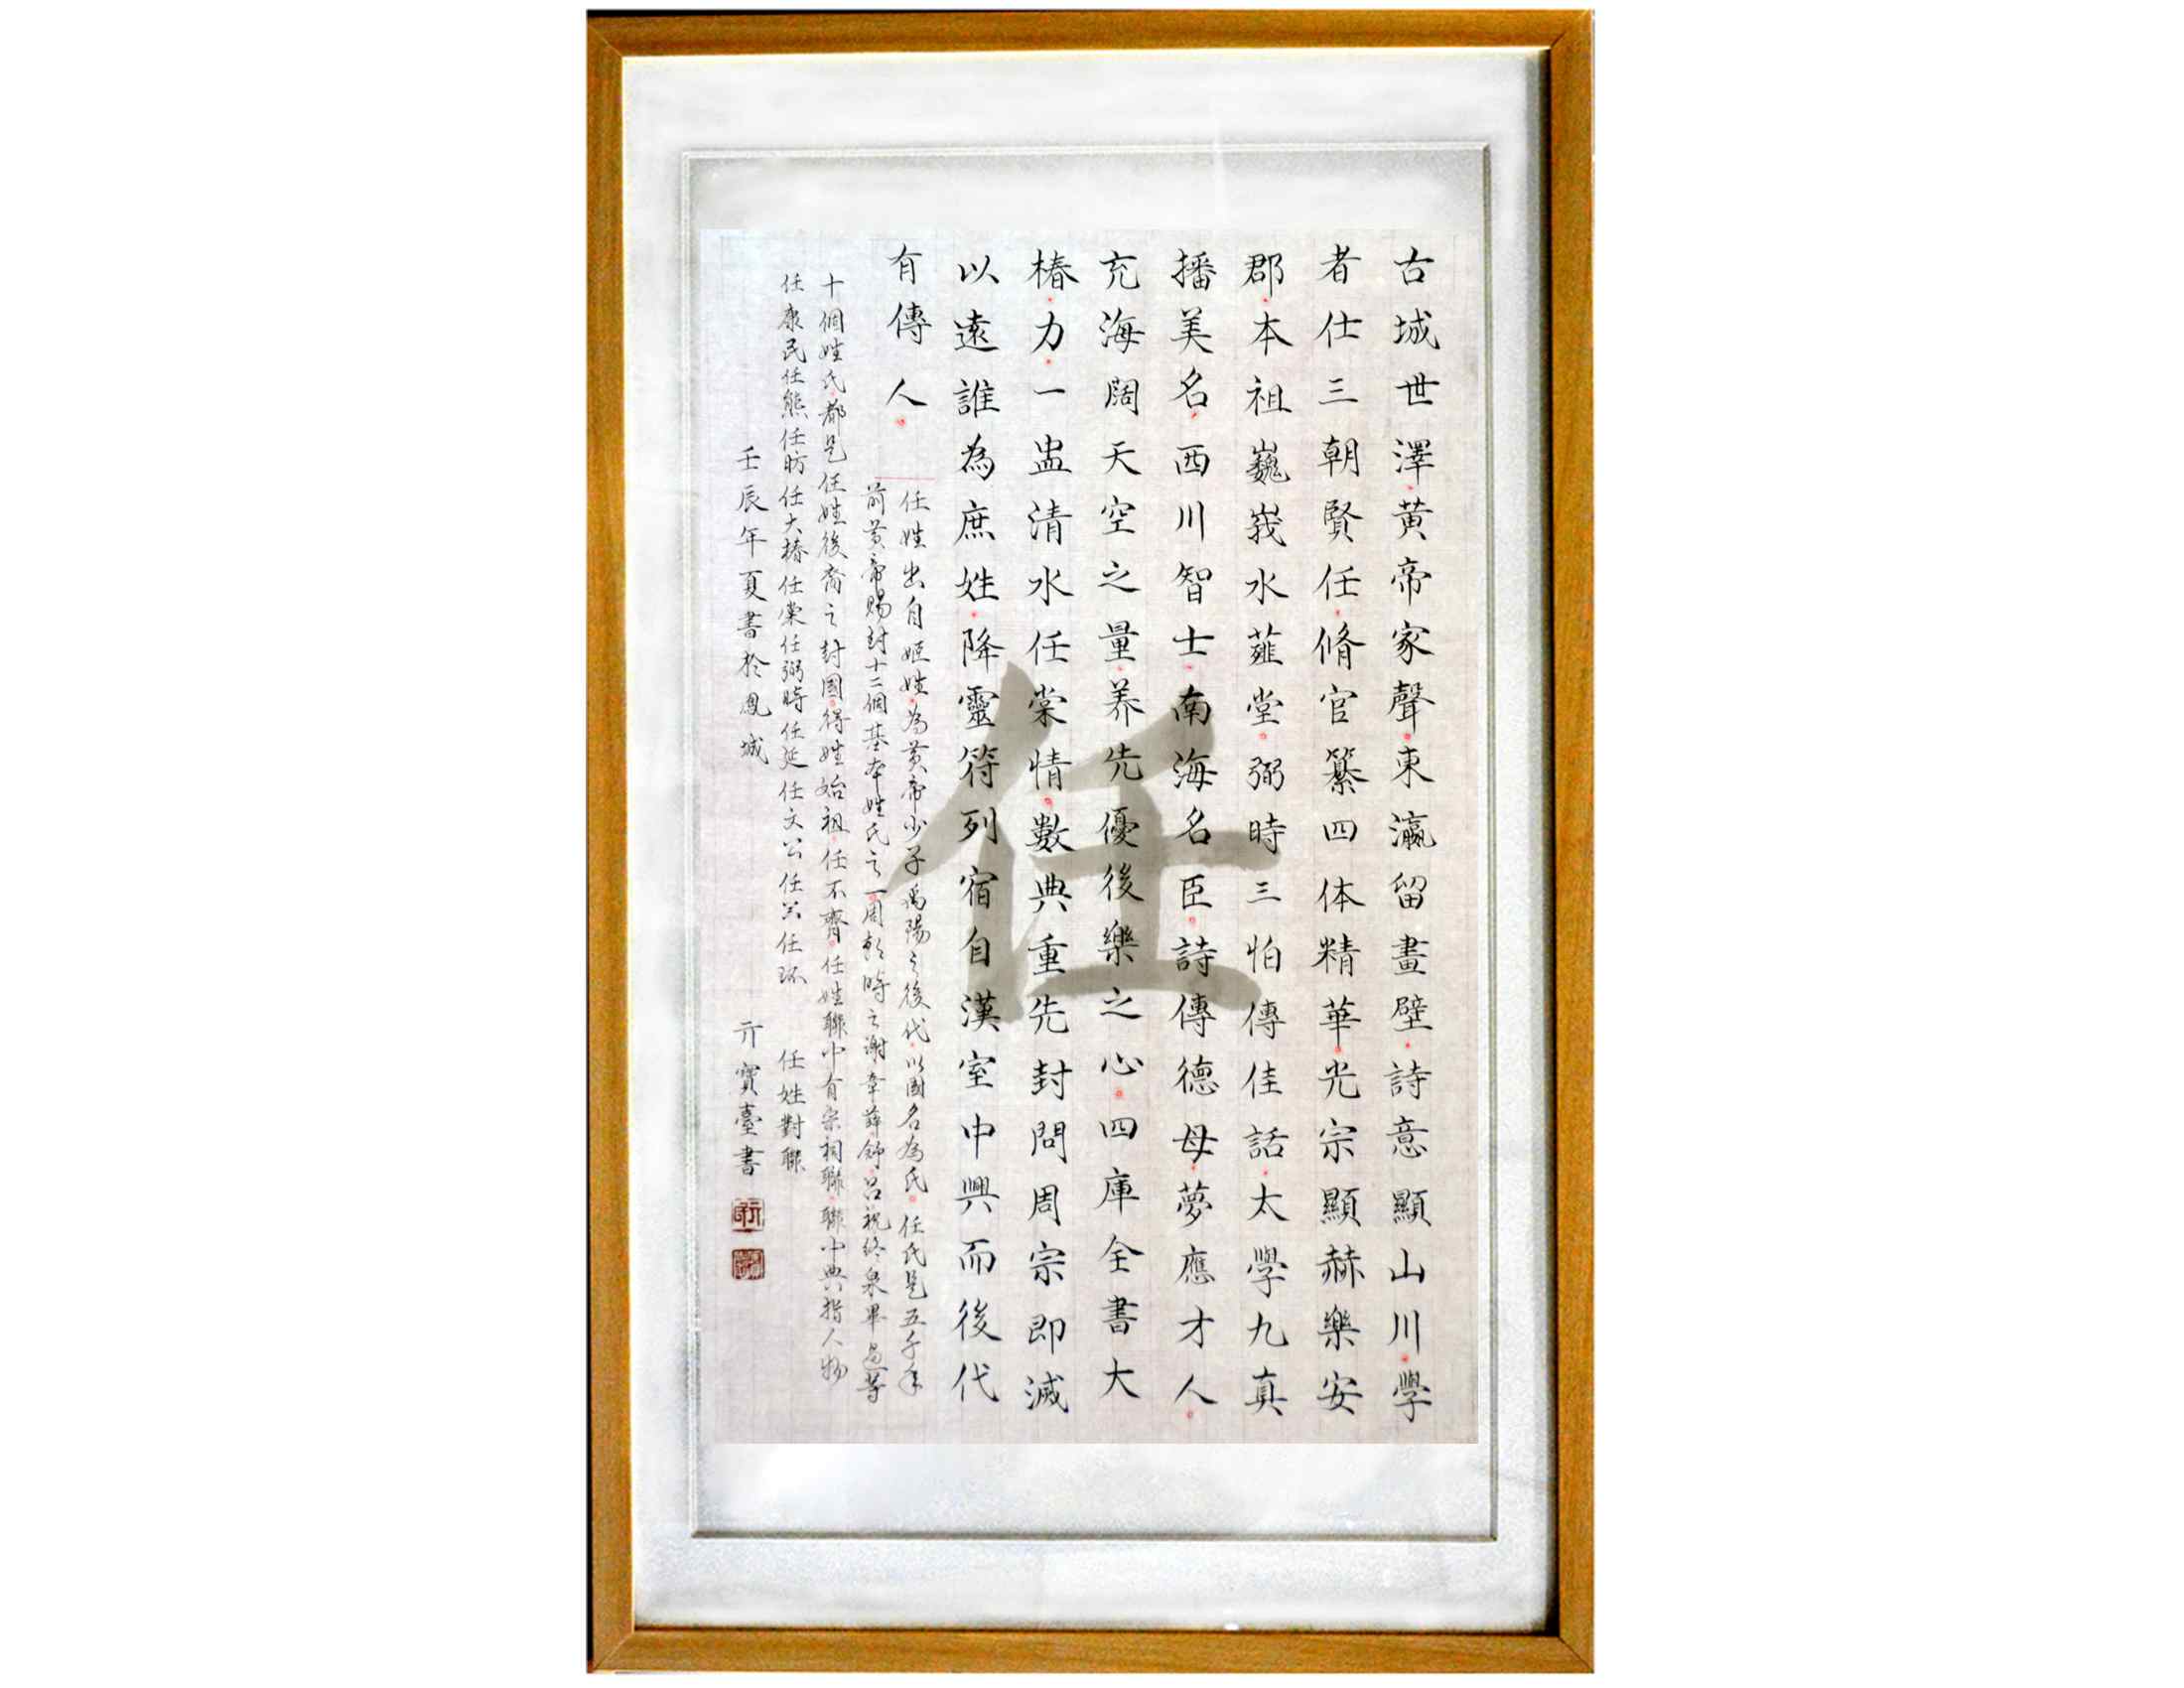 古城世澤黃帝家聲東瀛留畫壁詩意顯山川學
者仕三朝賢任脩官纂四体精華光宗顯赫樂安
郡本祖巍峩水薤堂弼時三怕傳佳話太學九真
播美名西川智士南海名臣詩傳德母夢應才人
充海闊天空之量养先優後樂之心四庫全書大
椿力一盅清水任棠情數典重先封問周宗即滅
以遠誰為庶姓降靈符列宿自漢室中興而後代
有傳人
任姓出自姬姓為黃帝少子禹陽之後代以國名為氏任氏是五千年
前黃帝賜封十二個基本姓氏之一周朝時之謝章薛舒呂祝終泉畢過等
十個姓氏都是任姓後裔之封國得姓始祖任不齊任姓聯中有宗祠聯聯中典指人物
任康民任熊任昉任大椿任棠任弼時任延任文公任公任环
任姓對聯
壬辰年夏書於鳳城
亓寶臺書
任